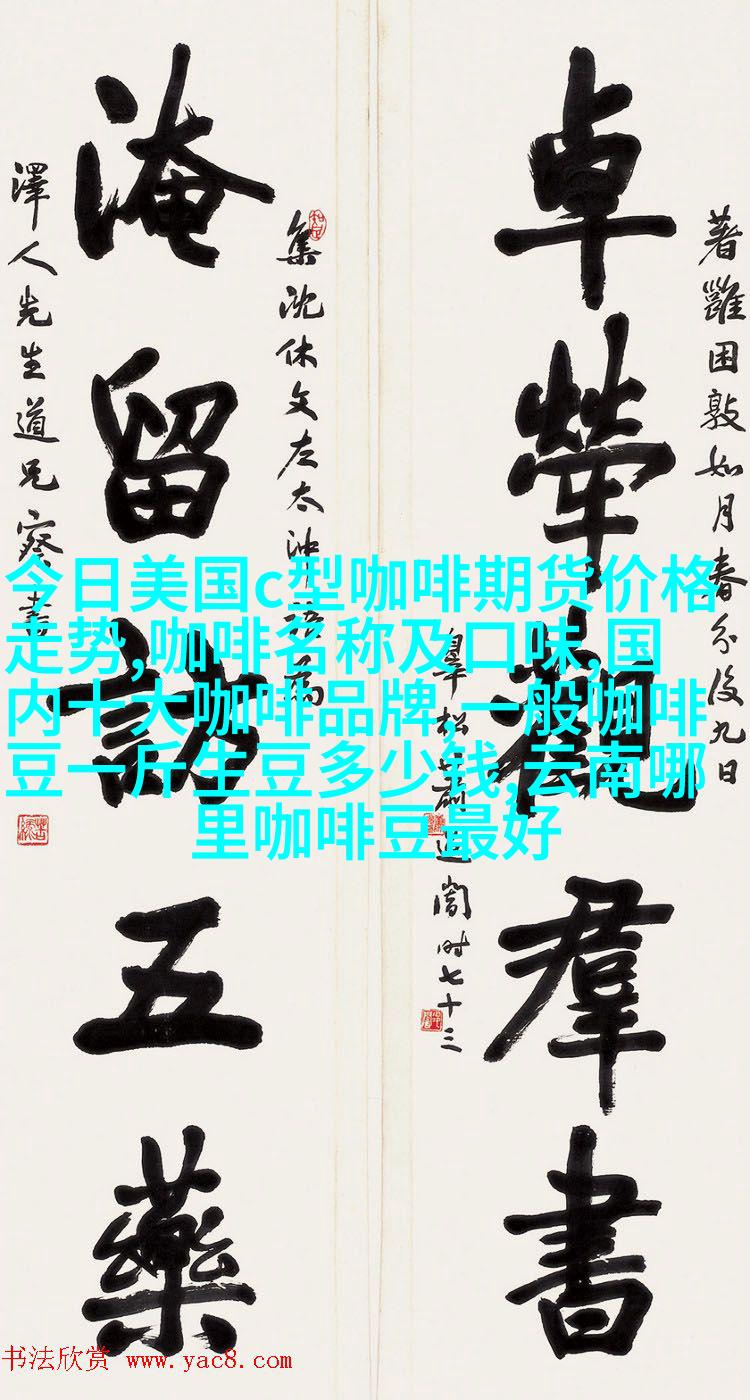 著雝困敦如月春分後九日
卓犖觀羣書
松蕭退闇时七十三
集沈休文左太冲
淹留訪五藥
澤人先生道兄
今日美国c型咖啡期货价格
走势,咖啡名称及口味,国
内十大咖啡品牌,一般咖啡
豆一斤生豆多少钱,云南哪
里咖啡豆最好
书法欣赏 www.yac8.com